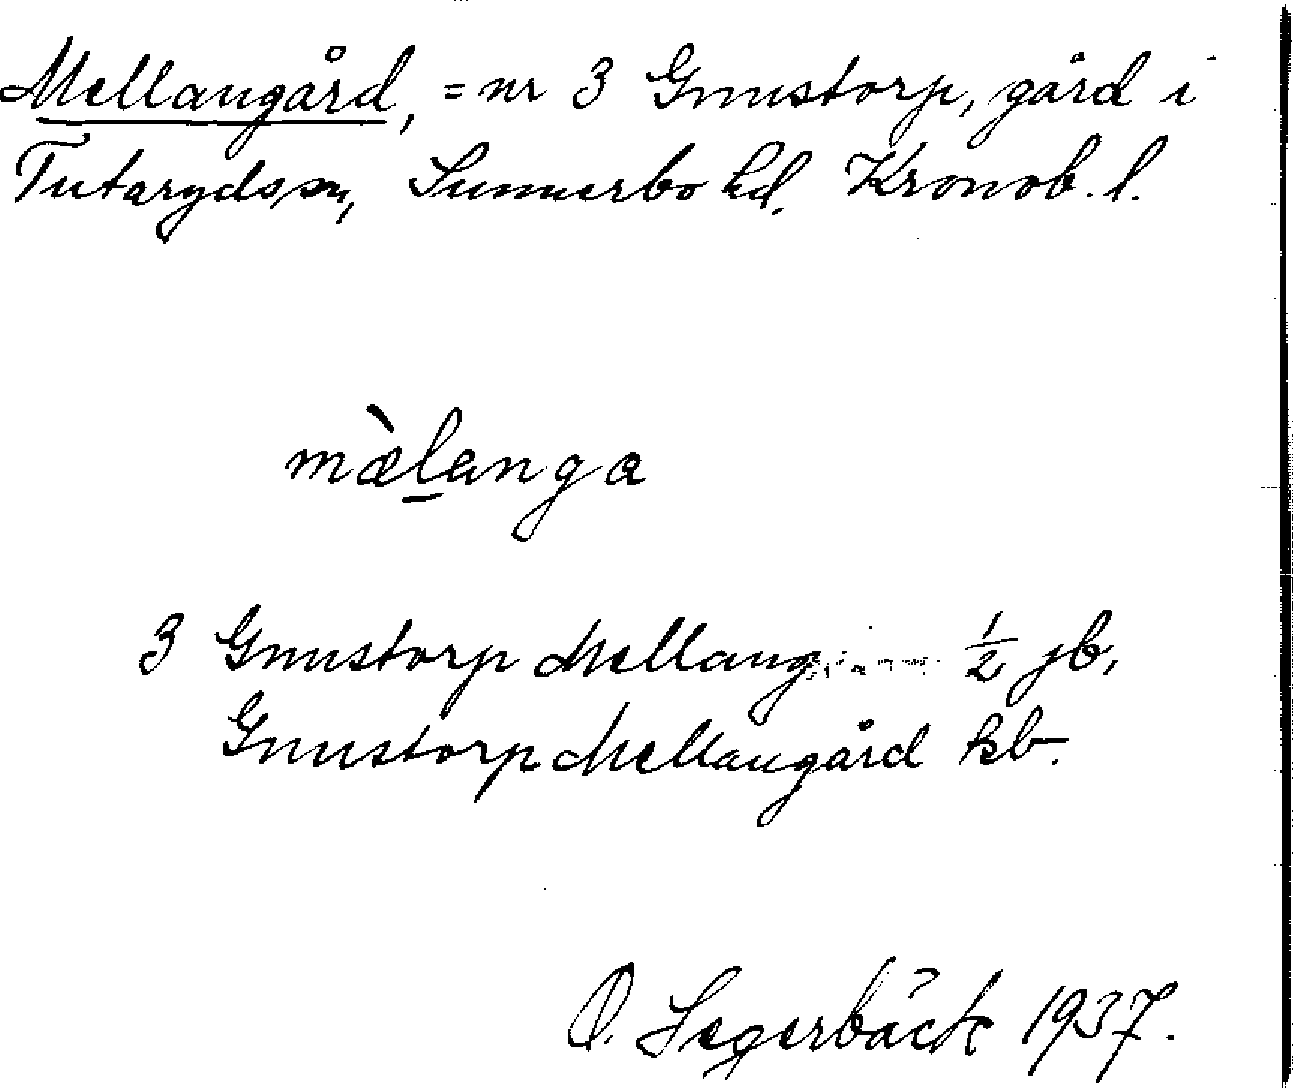 Mellangård, = nr 3 Gnustorp, gård i
Tutaryds sn, Sunnerbo hd. Kronob. l.
mæ̀l̲anga
3 Gnustorp Mellang. ½ jb.
Gnustorp Mellangård kb.
O. Segerbäck 1937.